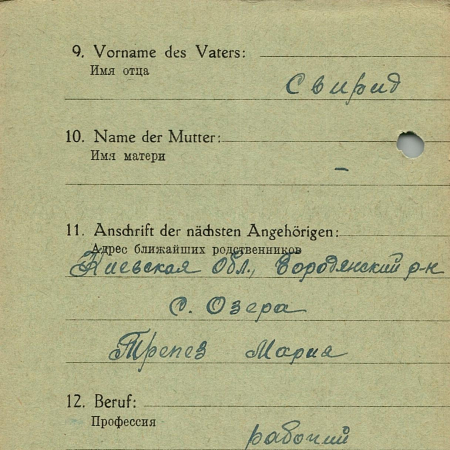 9. Vorname des Vaters:
Имя отца
Свирид
10. Name der Mutter:
Имя матери
–
11. Anschrift der nächsten Angehörigen:
Адрес ближайших родственников
Киевская Обл., Бородянский р-н
с. Озера
Трепез Мария
12. Beruf:
Профессия
рабочий